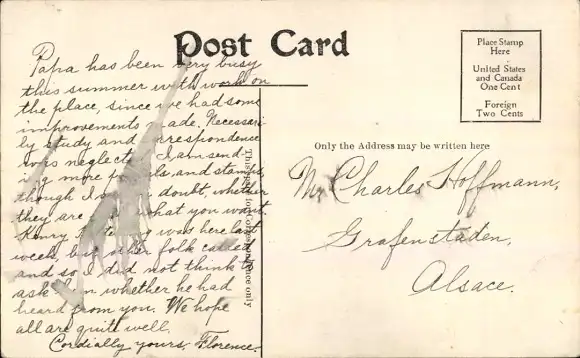 Post Card
Place Stamp
Here
United States
and Canada
One Cent
Foreign
Two Cents
Papa has been very busy
this summer with work on
the place, since we had some
improvements made. Necessari-
ly study and correspondence
was neglected. I am send-
ing more postals and stamps,
though I am in doubt, whether
they are what you want.
Henry was here last
week, but other folk called
and so I did not think to
ask him whether he had
heard from you. We hope
all are quite well.
Cordially yours, Florence.
This space for correspondence only
Only the Address may be written here
Mr. Charles Hoffmann,
Grafenstaden,
Alsace.